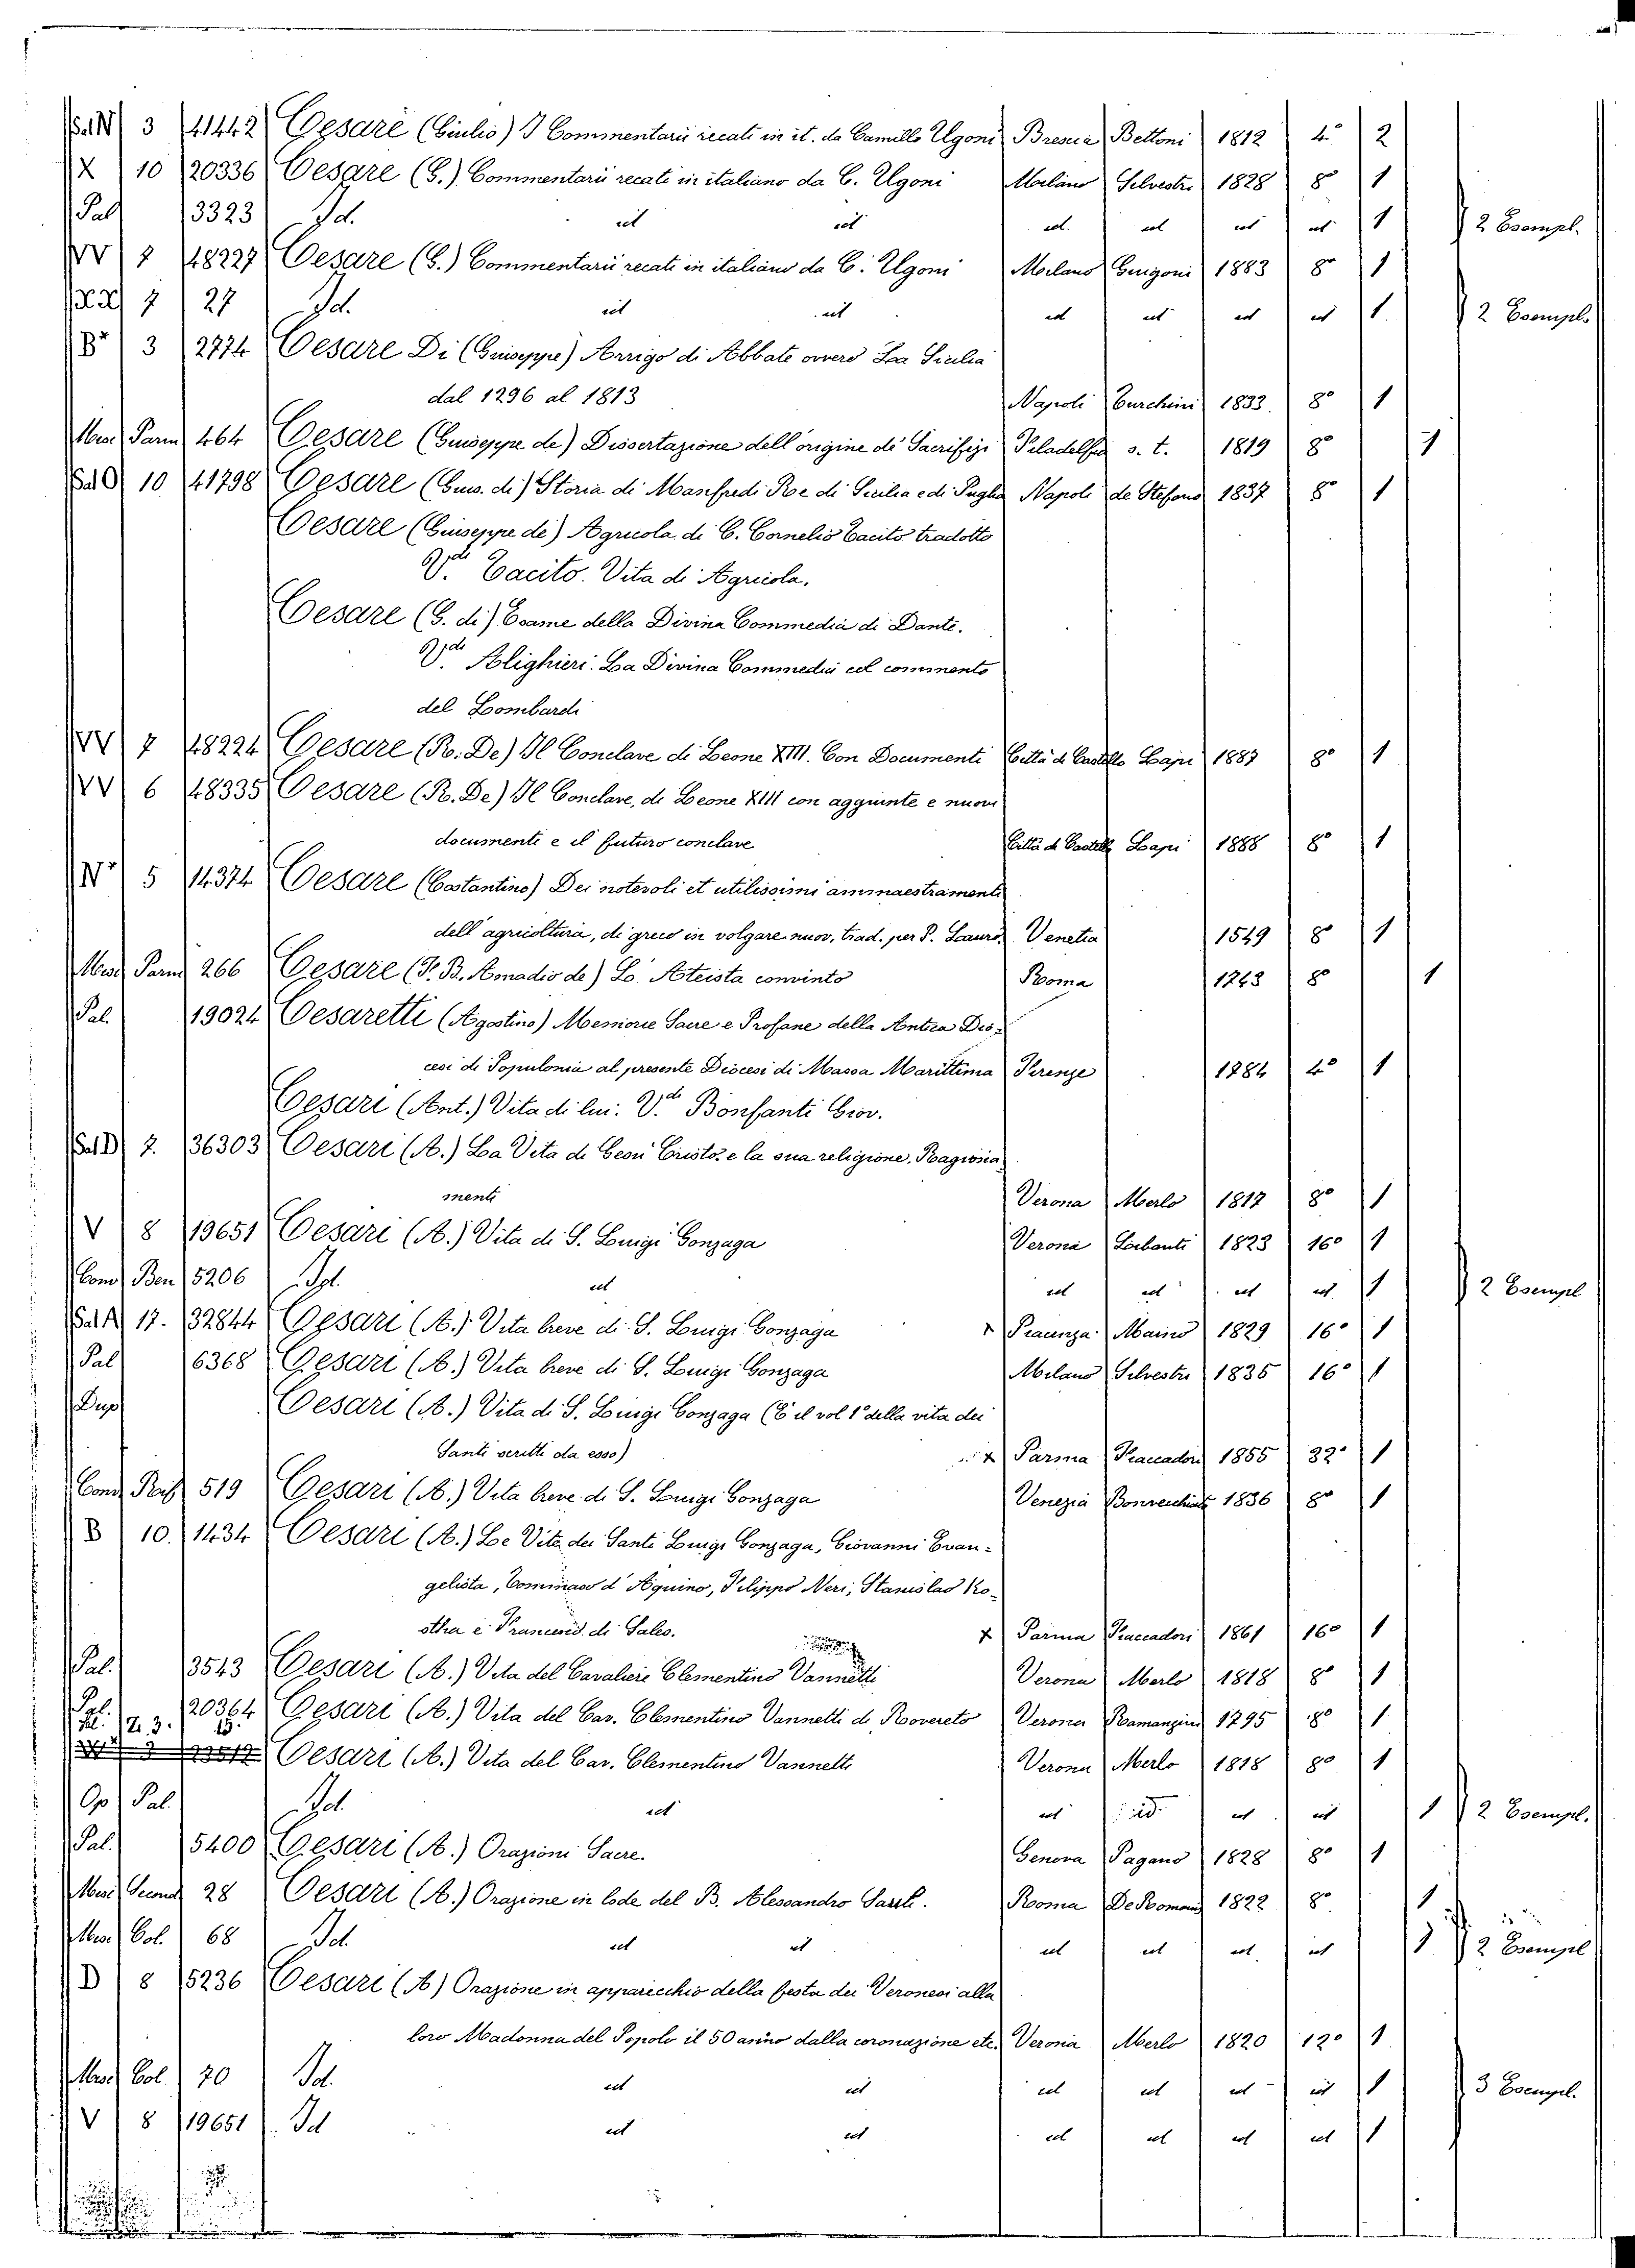 Sal. N 3 41442 Cesare (Giulio) I Commentarii recati in it. da Camillo Ugoni Brescia Bettoni 1812 4° 2
X 10 20336 Cesare (G.) Commentarii recati in italiano da C. Ugoni Milano Silvestri 1828 8° 1
Pal 3323 Id. id id id. id id id 1 2 Esempl.
VV 7 48227 Cesare (G.) Commentarii recati in italiano da C. Ugoni Milano Guigoni 1883 8° 1
7 27 Id. id id id id id id 1 2 Esempl.
B 3 2774 Cesare Di (Giuseppe) Arrigo di Abbate ovvero La Sicilia
dal 1296 al 1813 Napoli Curchini 1833. 8° 1
Misc Parm 464 Cesare (Giuseppe de) Dissertazione dell'origine de' Sacrifizi Filadelfia s. t. 1819 8° 1
Sal O 10 41798 Cesare (Gius. di) Storia di Manfredi Re di Sicilia e di Puglia Napoli de Stefano 1837 8° 1
Cesare (Giuseppe de) Agricola di C. Cornelio Tacito tradotto
V.de Tacito. Vita di Agricola.
Cesare (G. di) Esame della Divina Commedia di Dante.
V.de Alighieri. La Divina Commedia col commento
del Lombardi
VV 7 48224 Cesare (R. De) Il Conclave di Leone XIII. Con Documenti Città di Castello Lapi 1887 8° 1
VV 6 48335 Cesare (R. De) Il Conclave, di Leone XIII con aggiunte e nuovi
documenti e il futuro conclave Città di Castello Lapi 1888 8° 1
N 5 14374 Cesare (Costantino) Dei notevoli et utilissimi ammaestramenti
dell'agricoltura, di greco in volgare nuov, trad. per P. Lauro. Venetia 1549 8° 1
Misc Parm 266 Cesare (F. B. Amadio de) Lo Ateista convinto Roma 1243 8° 1
Pal. 19024 Cesaretti (Agostino) Memorie Sacre e Profane della Antica Dio-
cesi di Populonia al presente Diocesi di Massa Marittima Firenze 1784 4° 1
Cesari (Ant.) Vita di lui. V.de Bonfanti Giov.
Sal D 7. 36303 Cesari (A.) La Vita di Gesù Cristo, e la sua religione. Ragiona
menti Verona Merlo 1817 8° 1
V 8 19651 Cesari (A.) Vita di S. Luigi Gonzaga Verona Libanti 1823 16° 1
Cond Ben 5206 Id. id id id id id 1 2 Esempl
Sal A 17. 32844 Cesari (A.) Vita breve di S. Luigi Gonzaga Piacenza Maino 1829 16° 1
Pal 6368 Cesari (A.) Vita breve di S. Luigi Gonzaga Milano Silvestri 1835 16° 1
Dup Cesari (A.) Vita di S. Luigi Gonzaga (È il vol 1° della vita dei
Santi scritti da esso) x Parma Fiaccadori 1855 32° 1
Cond 519 Cesari (A.) Vita breve di S. Luigi Gonzaga Venezia 1836 8° 1
B 10. 1434 Cesari (A.) Le Vite dei Santi Luigi Gonzaga, Giovanni Evan-
gelista, Tommaso d'Aquino, Filippo Neri, Stanislao Ko-
stka e Francesco di Sales. x Parma Fiaccadori 1861 16° 1
Pal. 3543 Cesari (A.) Vita del Cavaliere Clementino Vannetti Verona Merlo 1818 8° 1
Pal. 20364 Cesari (A.) Vita del Cav. Clementino Vannetti di Rovereto Verona Ramanzini 1795 8° 1
Z. 3. 13. Cesari (A.) Vita del Cav. Clementino Vannetti Verona Merlo 1818 8° 1
Op Pal. Id. id id id. id id 1 2 Esempl.
Pal. 5400 Cesari (A.) Orazioni Sacre. Genova Pagano 1828 8° 1
Misc Second 28 Cesari (A.) Orazione in lode del B. Alessandro Sauli. Roma De Romanis 1822 8° 1
Misc Col. 68 Id. id id id id id id 1 2 Esempl
D 8 5236 Cesari (A) Orazione in apparecchio della festa dei Veronesi alla
loro Madonna del Popolo il 50 anno dalla coronazione etc. Verona Merlo 1820 12° 1
Misc Col. 70 Id. id id id id id id 1 3 Esempl.
V 8 19651 Id id id id id id id 1